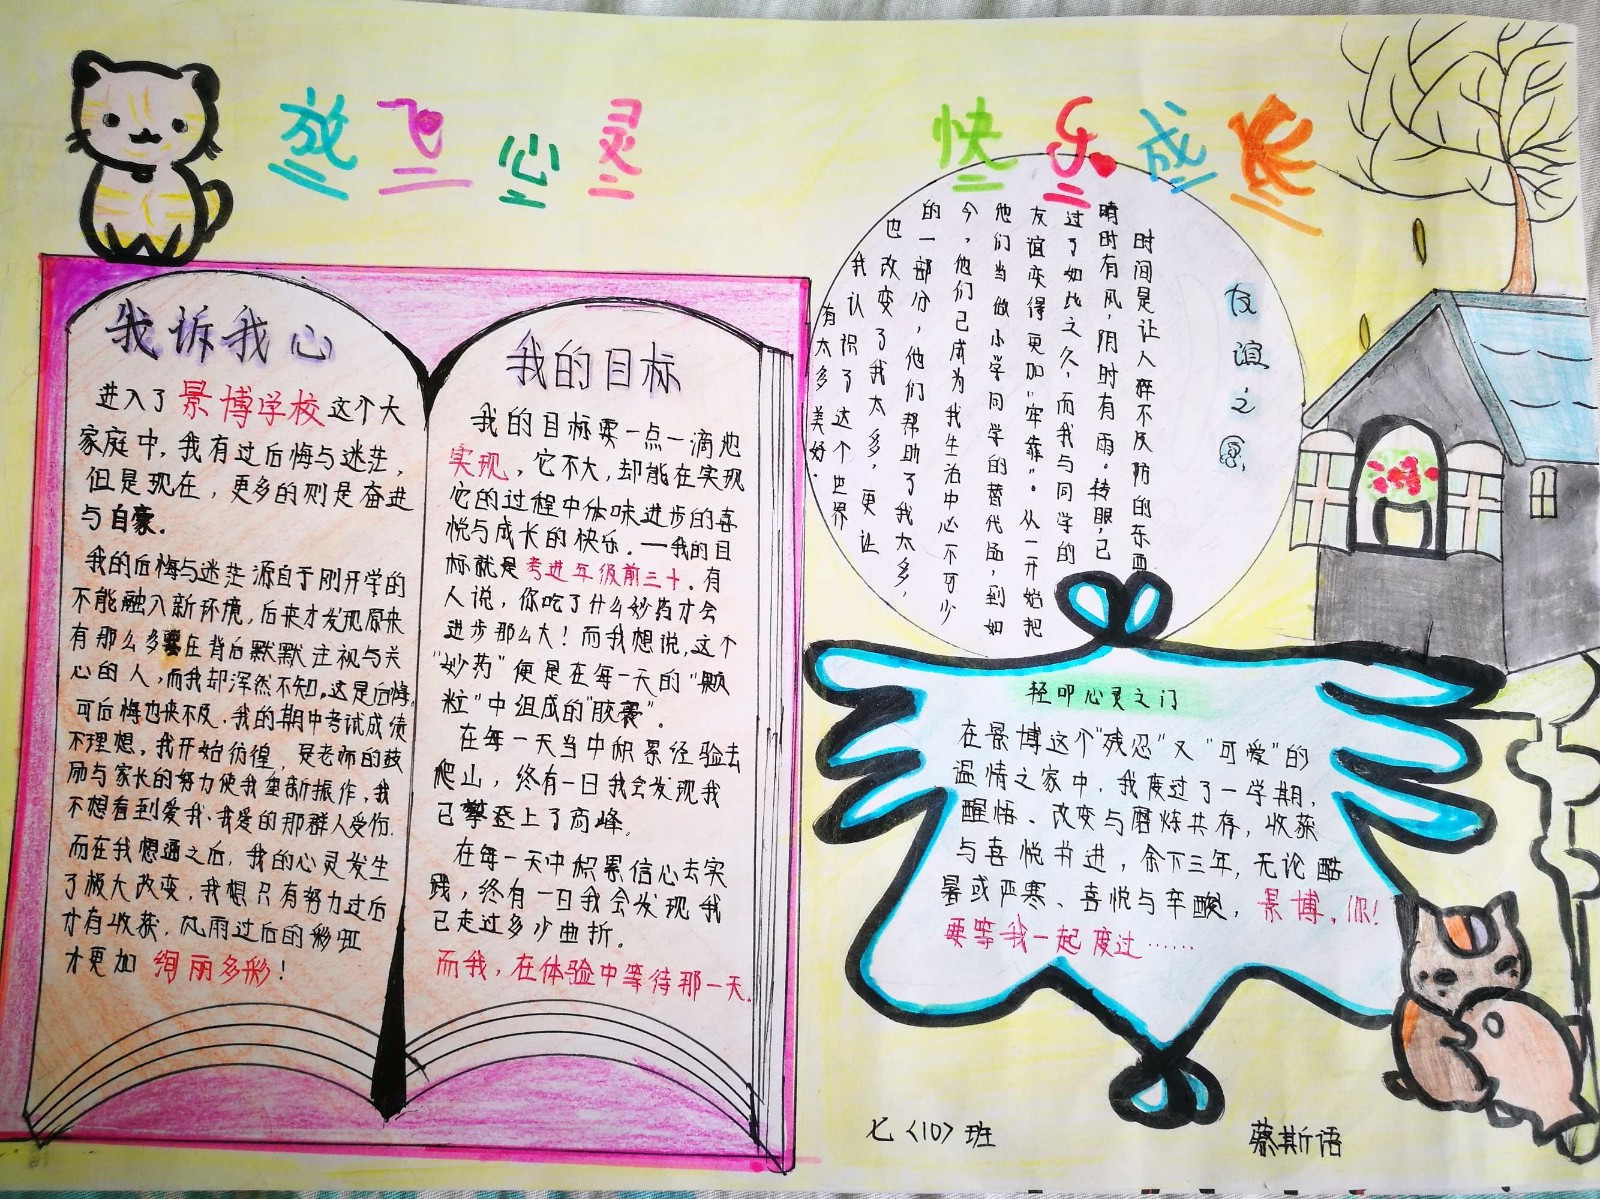 放飞心灵
快乐成长
我诉我心
进入了景博学校这个大
家庭中,我有过后悔与迷茫,
但是现在,更多的则是奋进
与自豪。
我的后悔与迷茫源自于刚开学的
不能融入新环境,后来才发现原来
有那么多在背后默默注视与关
心的人,而我却浑然不知。这是后悔,
可后悔也来不及,我的期中考试成绩
不理想,我开始彷徨,是老师的鼓
励与家长的努力使我重新振作,我
不想看到爱我、我爱的那群人受伤.
而在我想通之后,我的心灵发生
了极大改变,我想只有努力过后
才有收获,风雨过后的彩虹
才更加绚丽多彩!
我的目标
我的目标要一点一滴地
实现,它不大,却能在实现
它的过程中体味进步的喜
悦与成长的快乐。—我的目
标就是考进年级前三十。有
人说,你吃了什么妙药才会
进步那么大!而我想说,这个
“妙药”便是在每一天的“颗
粒”中组成的“胶囊”。
在每一天当中积累经验去
爬山,终有一日我会发现我
已攀登上了高峰。
在每一天中积累信心去实
践,终有一日我会发现我
已走过多少曲折。
而我,在体验中等待那一天。
友谊之
时间是让人猝不及防的东西
晴时有风,阴时有雨。转眼,已
过了如此之久,而我与同学的
友谊变得更加“牢靠”。从一开始把
他们当做小学同学的替代品,到如
今,他们已成为我生活中必不可少
的一部分,他们帮助了我太多,
也改变了我太多,更让
我认识了这个世界
有太多美好.
轻叩心灵之门
在景博这个“残忍”又“可爱”的
温情之家中,我度过了一学期,
醒悟、改变与磨炼共存,收获
与喜悦并进,余下三年,无论酷
暑或严寒、喜悦与辛酸,景博,你!
要等我一起度过……
七〈10〉班
蔡斯语